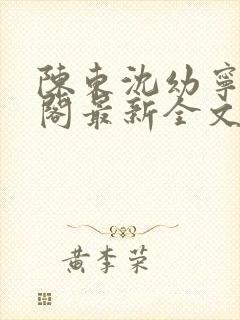 陈东沈幼寧
閣最新全文
黄李荣